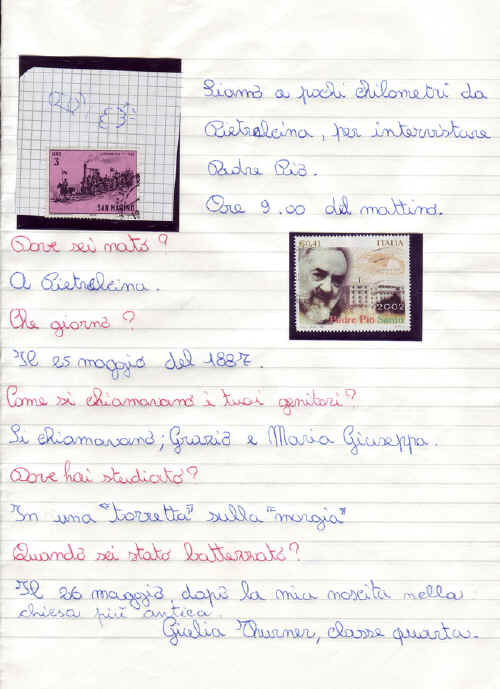 Siamo a pochi chilometri da
Pietrelcina, per intervistare
Padre Pio.
Ore 9.00 del mattino.
LIRE
3
SAN MARINO
€0,41 ITALIA
2002
Padre Pio Santo
Dove sei nato?
A Pietrelcina.
Che giorno?
Il 25 maggio del 1887.
Come si chiamavano i tuoi genitori?
Si chiamavano; Grazio e Maria Giuseppa.
Dove hai studiato?
In una "torretta" sulla "morgia"
Quando sei stato battezzato?
Il 26 maggio, dopo la mia nascita nella
chiesa più antica.
Giulia Thurner, classe quarta.